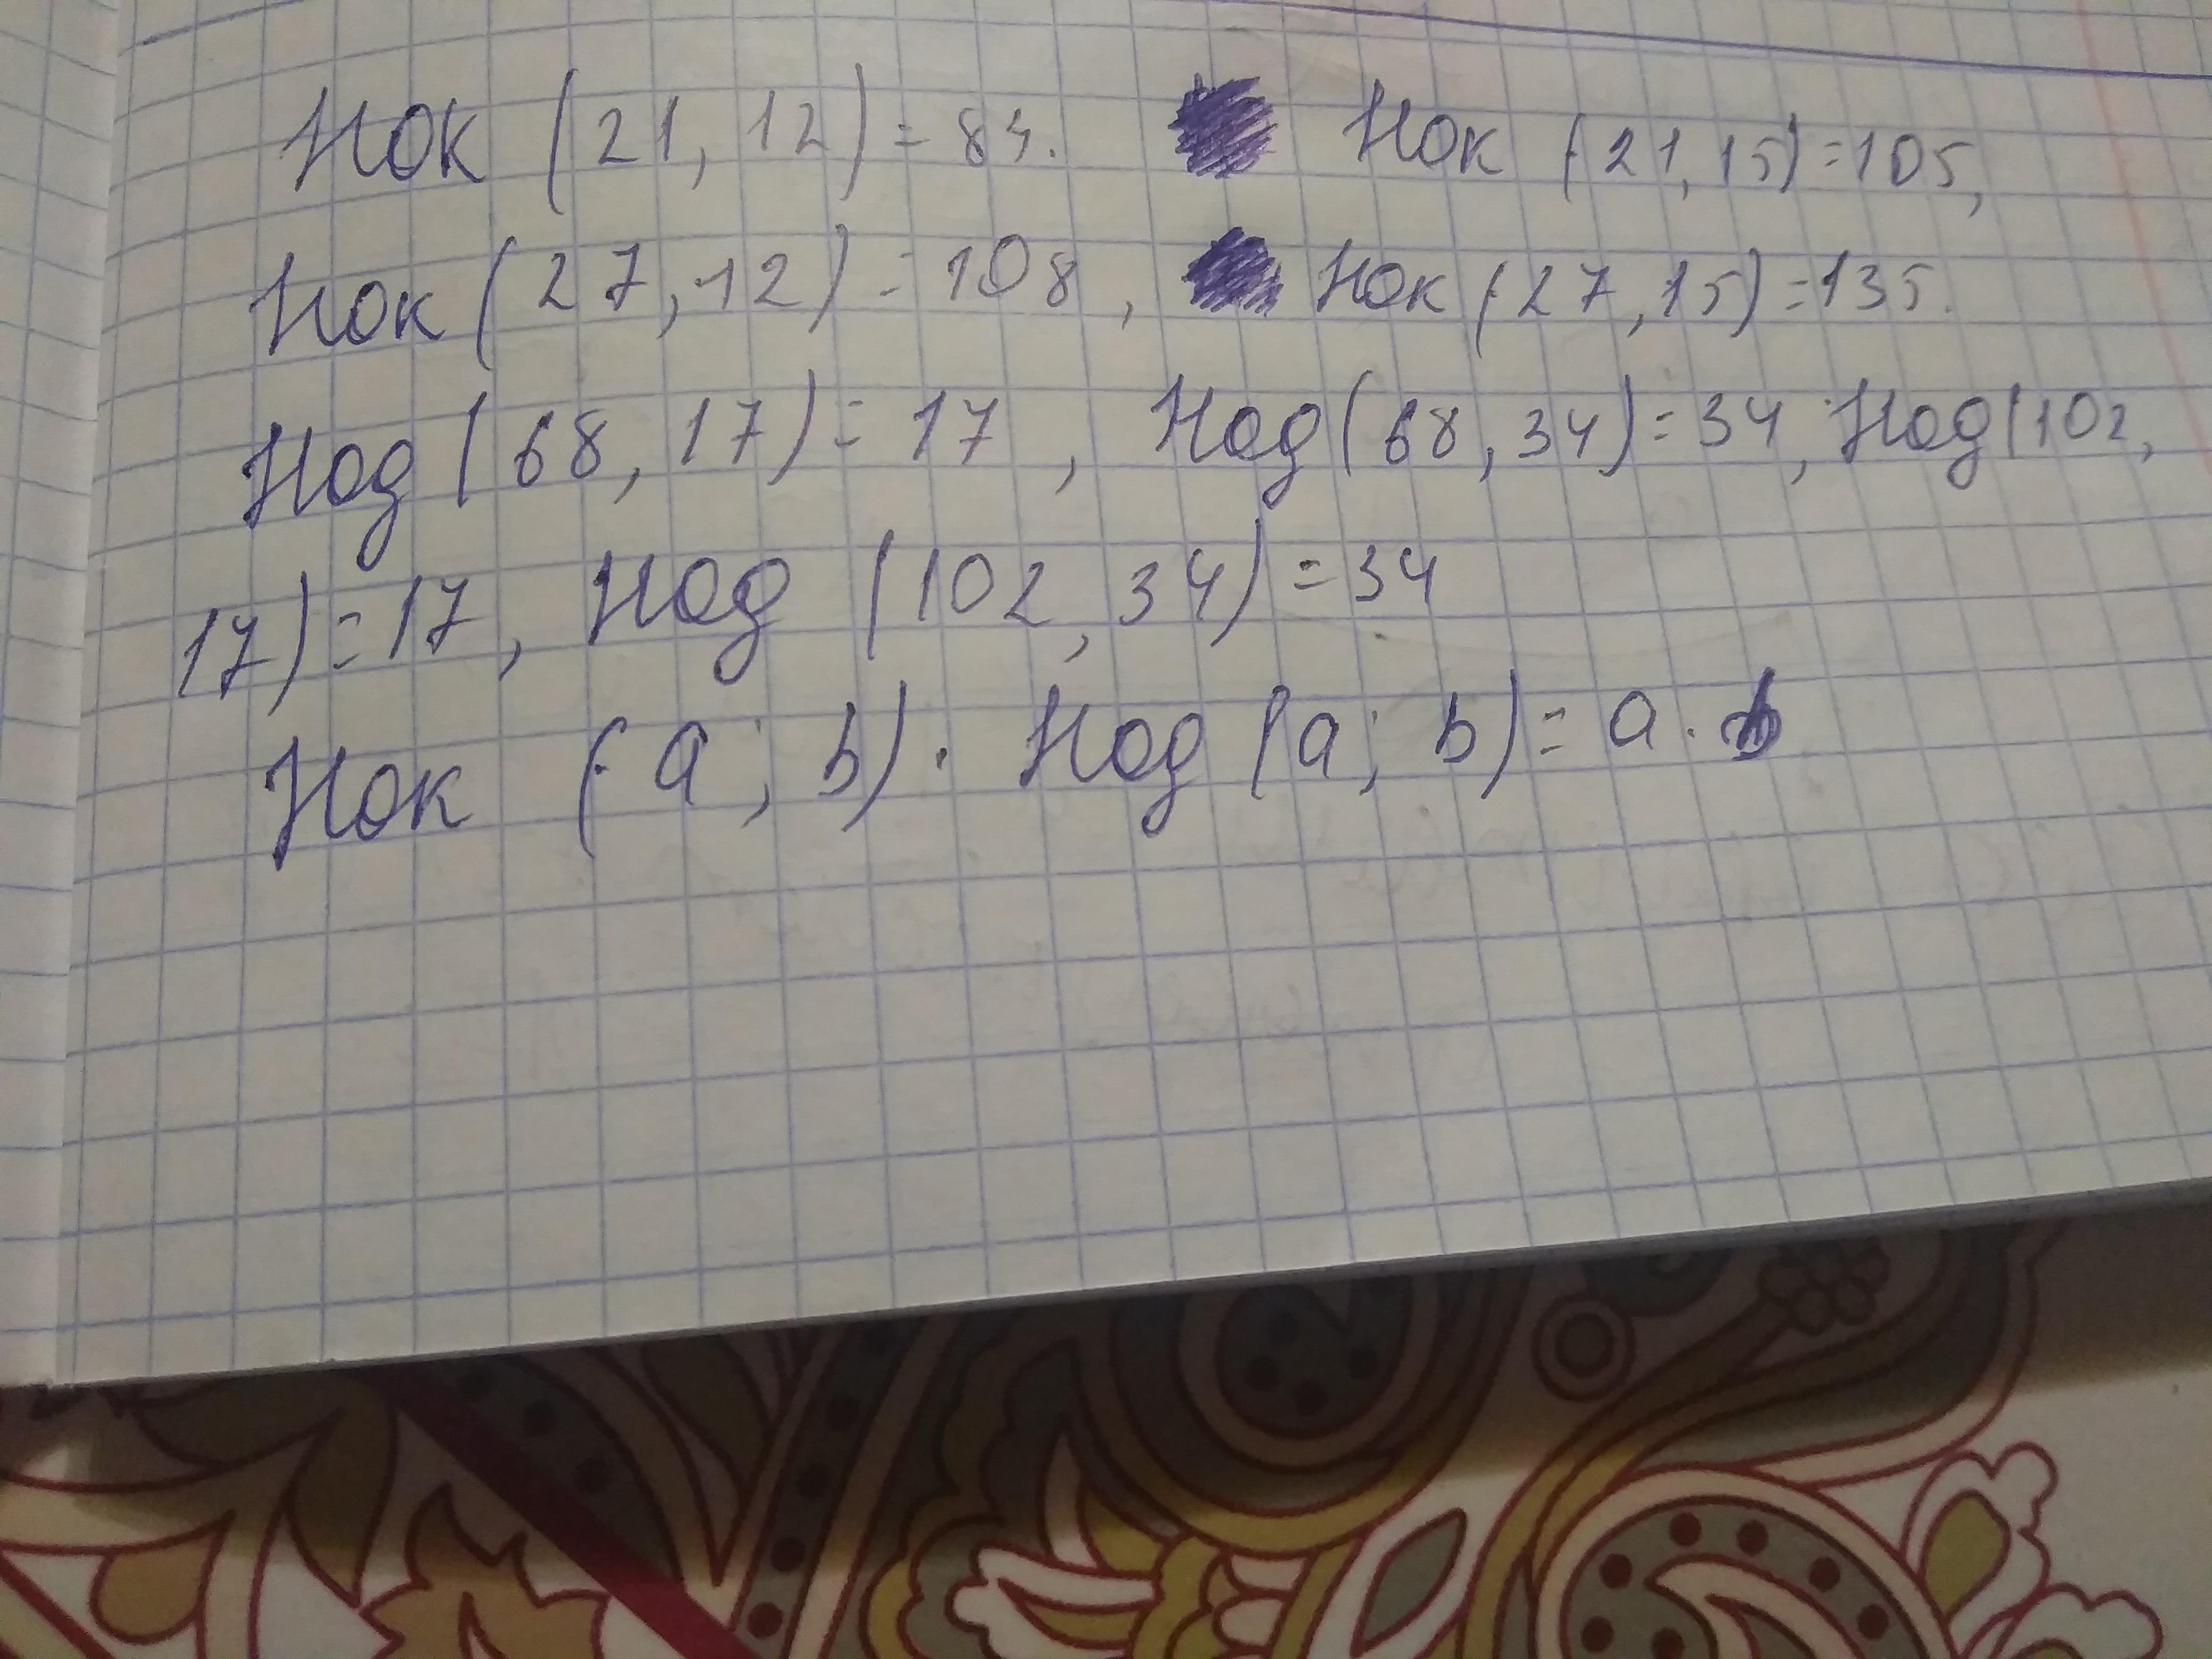 Нок (21, 12) = 84. Нок (21, 15) = 105,
Нок (27, 12) = 108, Нок (27, 15) = 135.
Нод (68, 17) = 17, Нод (68, 34) = 34, Нод (102,
17) = 17, Нод (102, 34) = 34
Нок (a; b) · Нод (a; b) = a · b